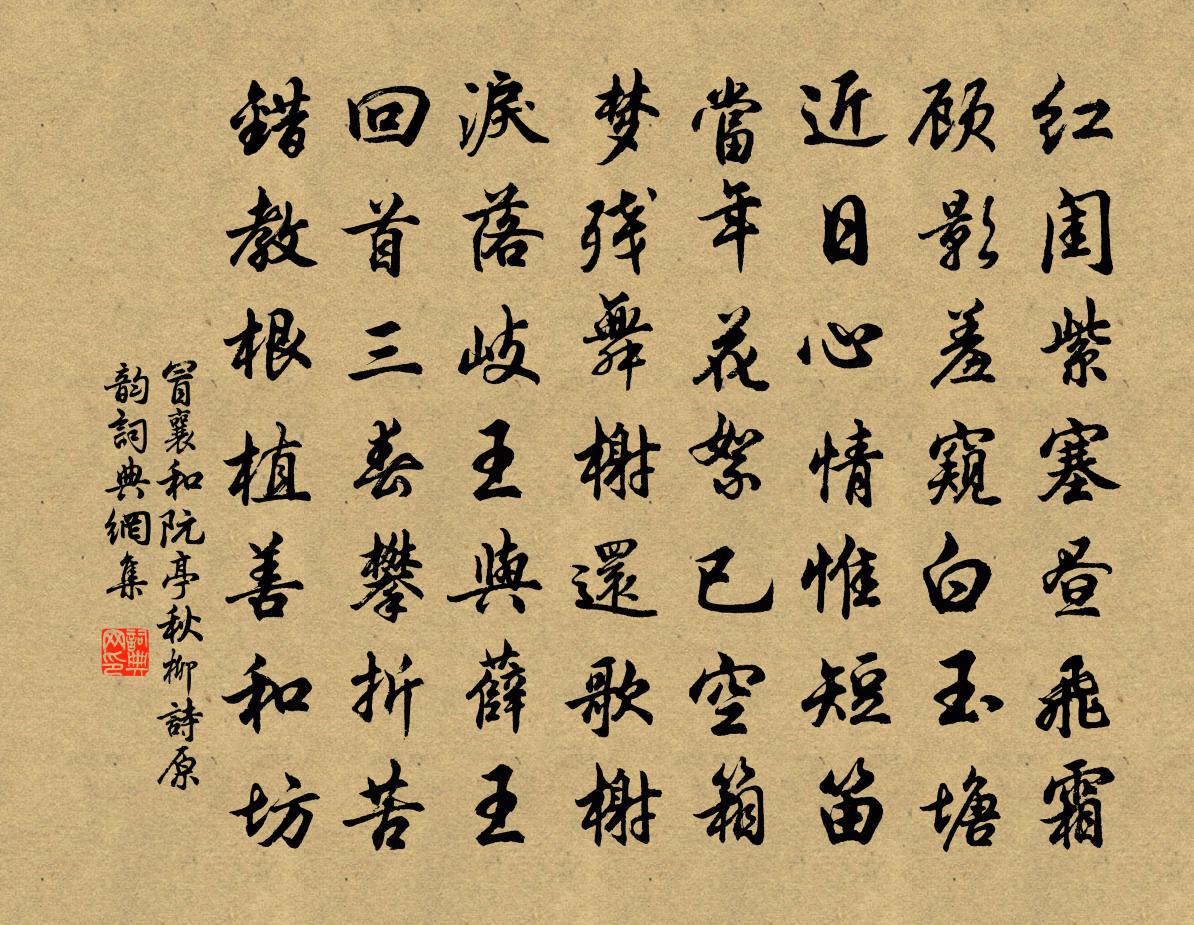 红闺紫塞昼飛霜
顾影羞窺白玉塘
近日心情惟短笛
當年花絮已空箱
梦残舞榭還歌榭
淚落岐王與薛王
回首三春攀折苦
錯教根植善和坊
冒襄和阮亭秋柳詩原
韵詞典網集
詞典网印